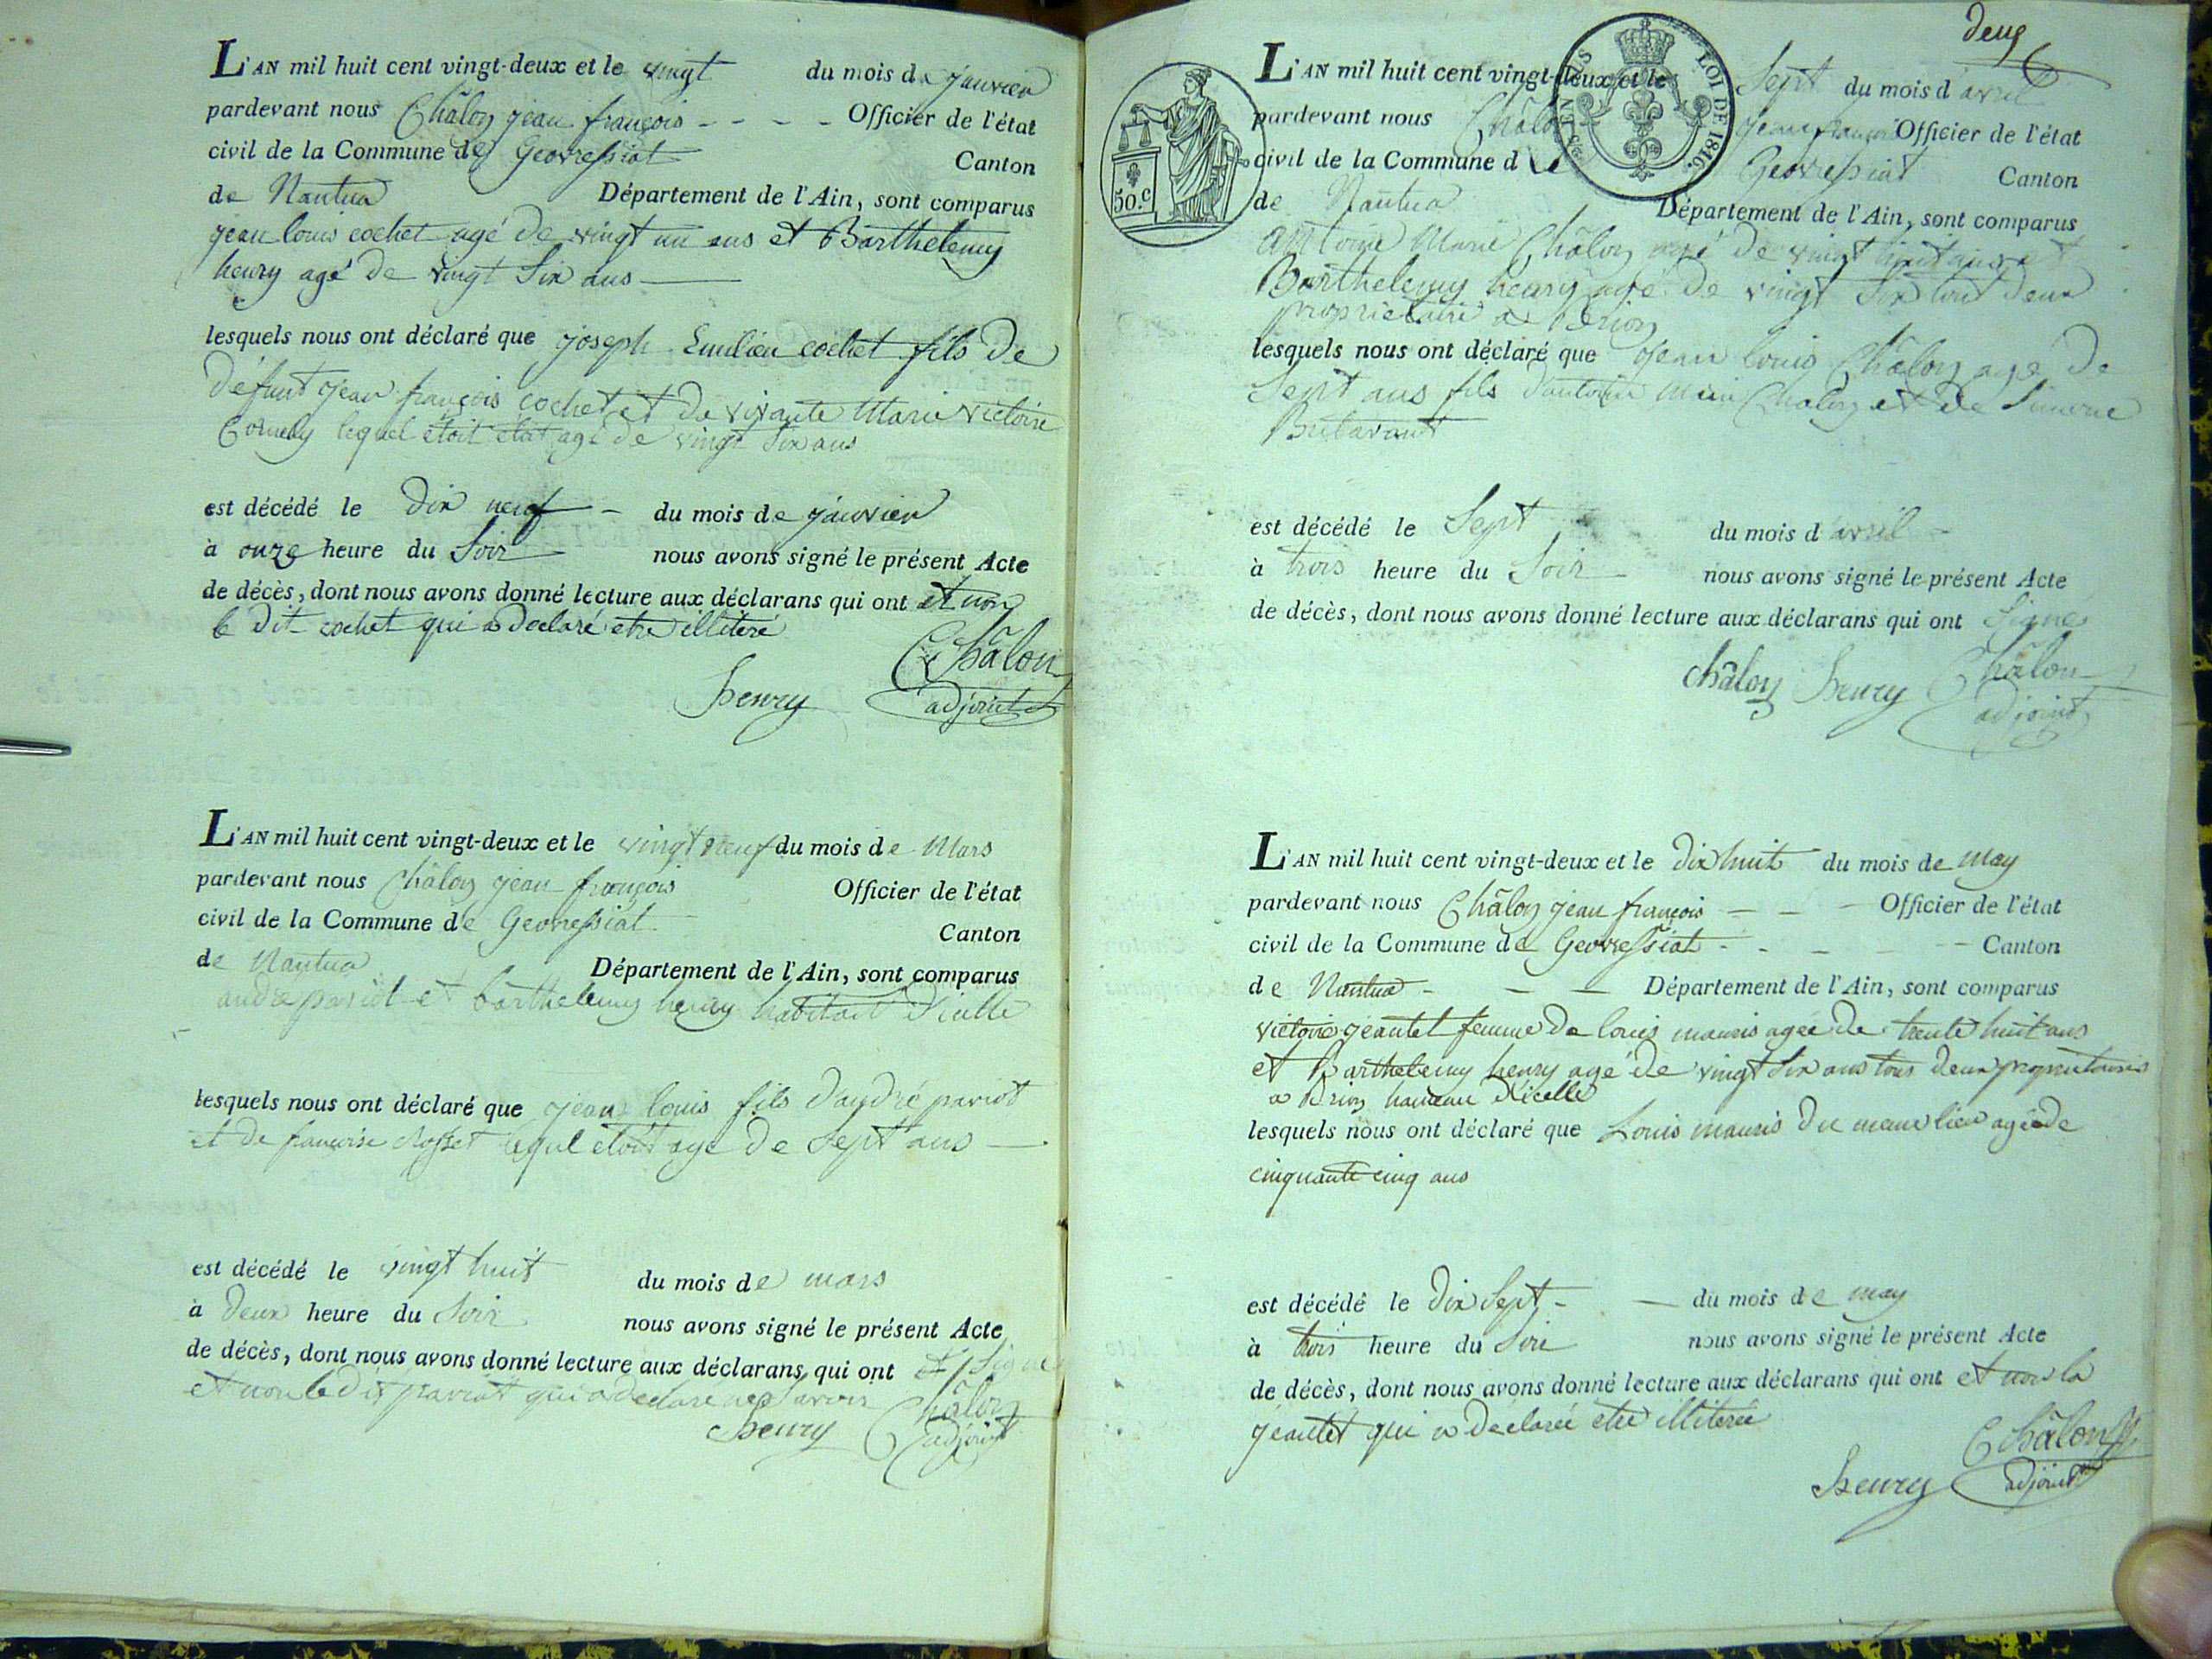 L'AN mil huit cent vingt-deux et le vingt du mois de janvier
pardevant nous Châlon jean françois - - - - Officier de l'état
civil de la Commune de Geovressiat Canton
de Nantua Département de l'Ain, sont comparus
jean louis cochet agé de vingt un ans et Barthelemy
henry agé de vingt Six ans
lesquels nous ont déclaré que joseph Emilien cochet fils de
défunt jean françois cochet et de vivante Marie victoire
lequel étoit état agé de vingt Six ans
est décédé le dix neuf - du mois de janvier
à onze heure du Soir nous avons signé le présent Acte
de décès, dont nous avons donné lecture aux déclarans qui ont et non
le dit cochet qui a declaré etre illiteré
Châlon
henry adjoint
L'AN mil huit cent vingt-deux et le vingt neuf du mois de Mars
pardevant nous Châlon jean françois Officier de l'état
civil de la Commune de Geovressiat Canton
de Nantua Département de l'Ain, sont comparus
andré pariot et barthelemy henry habitant d'icelle
lesquels nous ont déclaré que jean louis fils d'andré pariot
et de francoise lequel etoit age de Sept ans
est décédé le vingt huit du mois de mars
à deux heure du Soir nous avons signé le présent Acte
de décès, dont nous avons donné lecture aux déclarans qui ont et signé
et non le dit pariot qui a declare ne savoir
henry Châlon
adjoint
deux
EN SUS LOI DE 1816.
50.C
L'AN mil huit cent vingt-deux et le Sept du mois d'avril
pardevant nous Châlon jean françois Officier de l'état
civil de la Commune de Geovressiat Canton
de Nantua Département de l'Ain, sont comparus
antoine Marie Châlon agé de vingt huit ans et
Barthelemy henry agé de vingt Six tout deux
proprietaire a Brion
lesquels nous ont déclaré que jean louis Châlon age de
Sept ans fils d'antoine marie Chalon et de Simone
Butavant
est décédé le Sept du mois d avril -
à trois heure du Soir nous avons signé le présent Acte
de décès, dont nous avons donné lecture aux déclarans qui ont Signés
châlon henry Châlon
adjoint
L'AN mil huit cent vingt-deux et le dix huit du mois de may
pardevant nous Châlon jean françois - - - Officier de l'état
civil de la Commune de Geovressiat - - - - Canton
de Nantua - - - Département de l'Ain, sont comparus
victoire jeantet femme de louis mauris agée de trente huit ans
et Barthelemy henry agé de vingt Six ans tous deux proprietaires
a Brion hameau d'icelle
lesquels nous ont déclaré que Louis mauris du meme lieu agé de
cinquante cinq ans
est décédé le dix Sept - - du mois de may
à trois heure du Soir nous avons signé le présent Acte
de décès, dont nous avons donné lecture aux déclarans qui ont et non la
jeantet qui a declarée etre illiterée
Châlon
henry adjoint